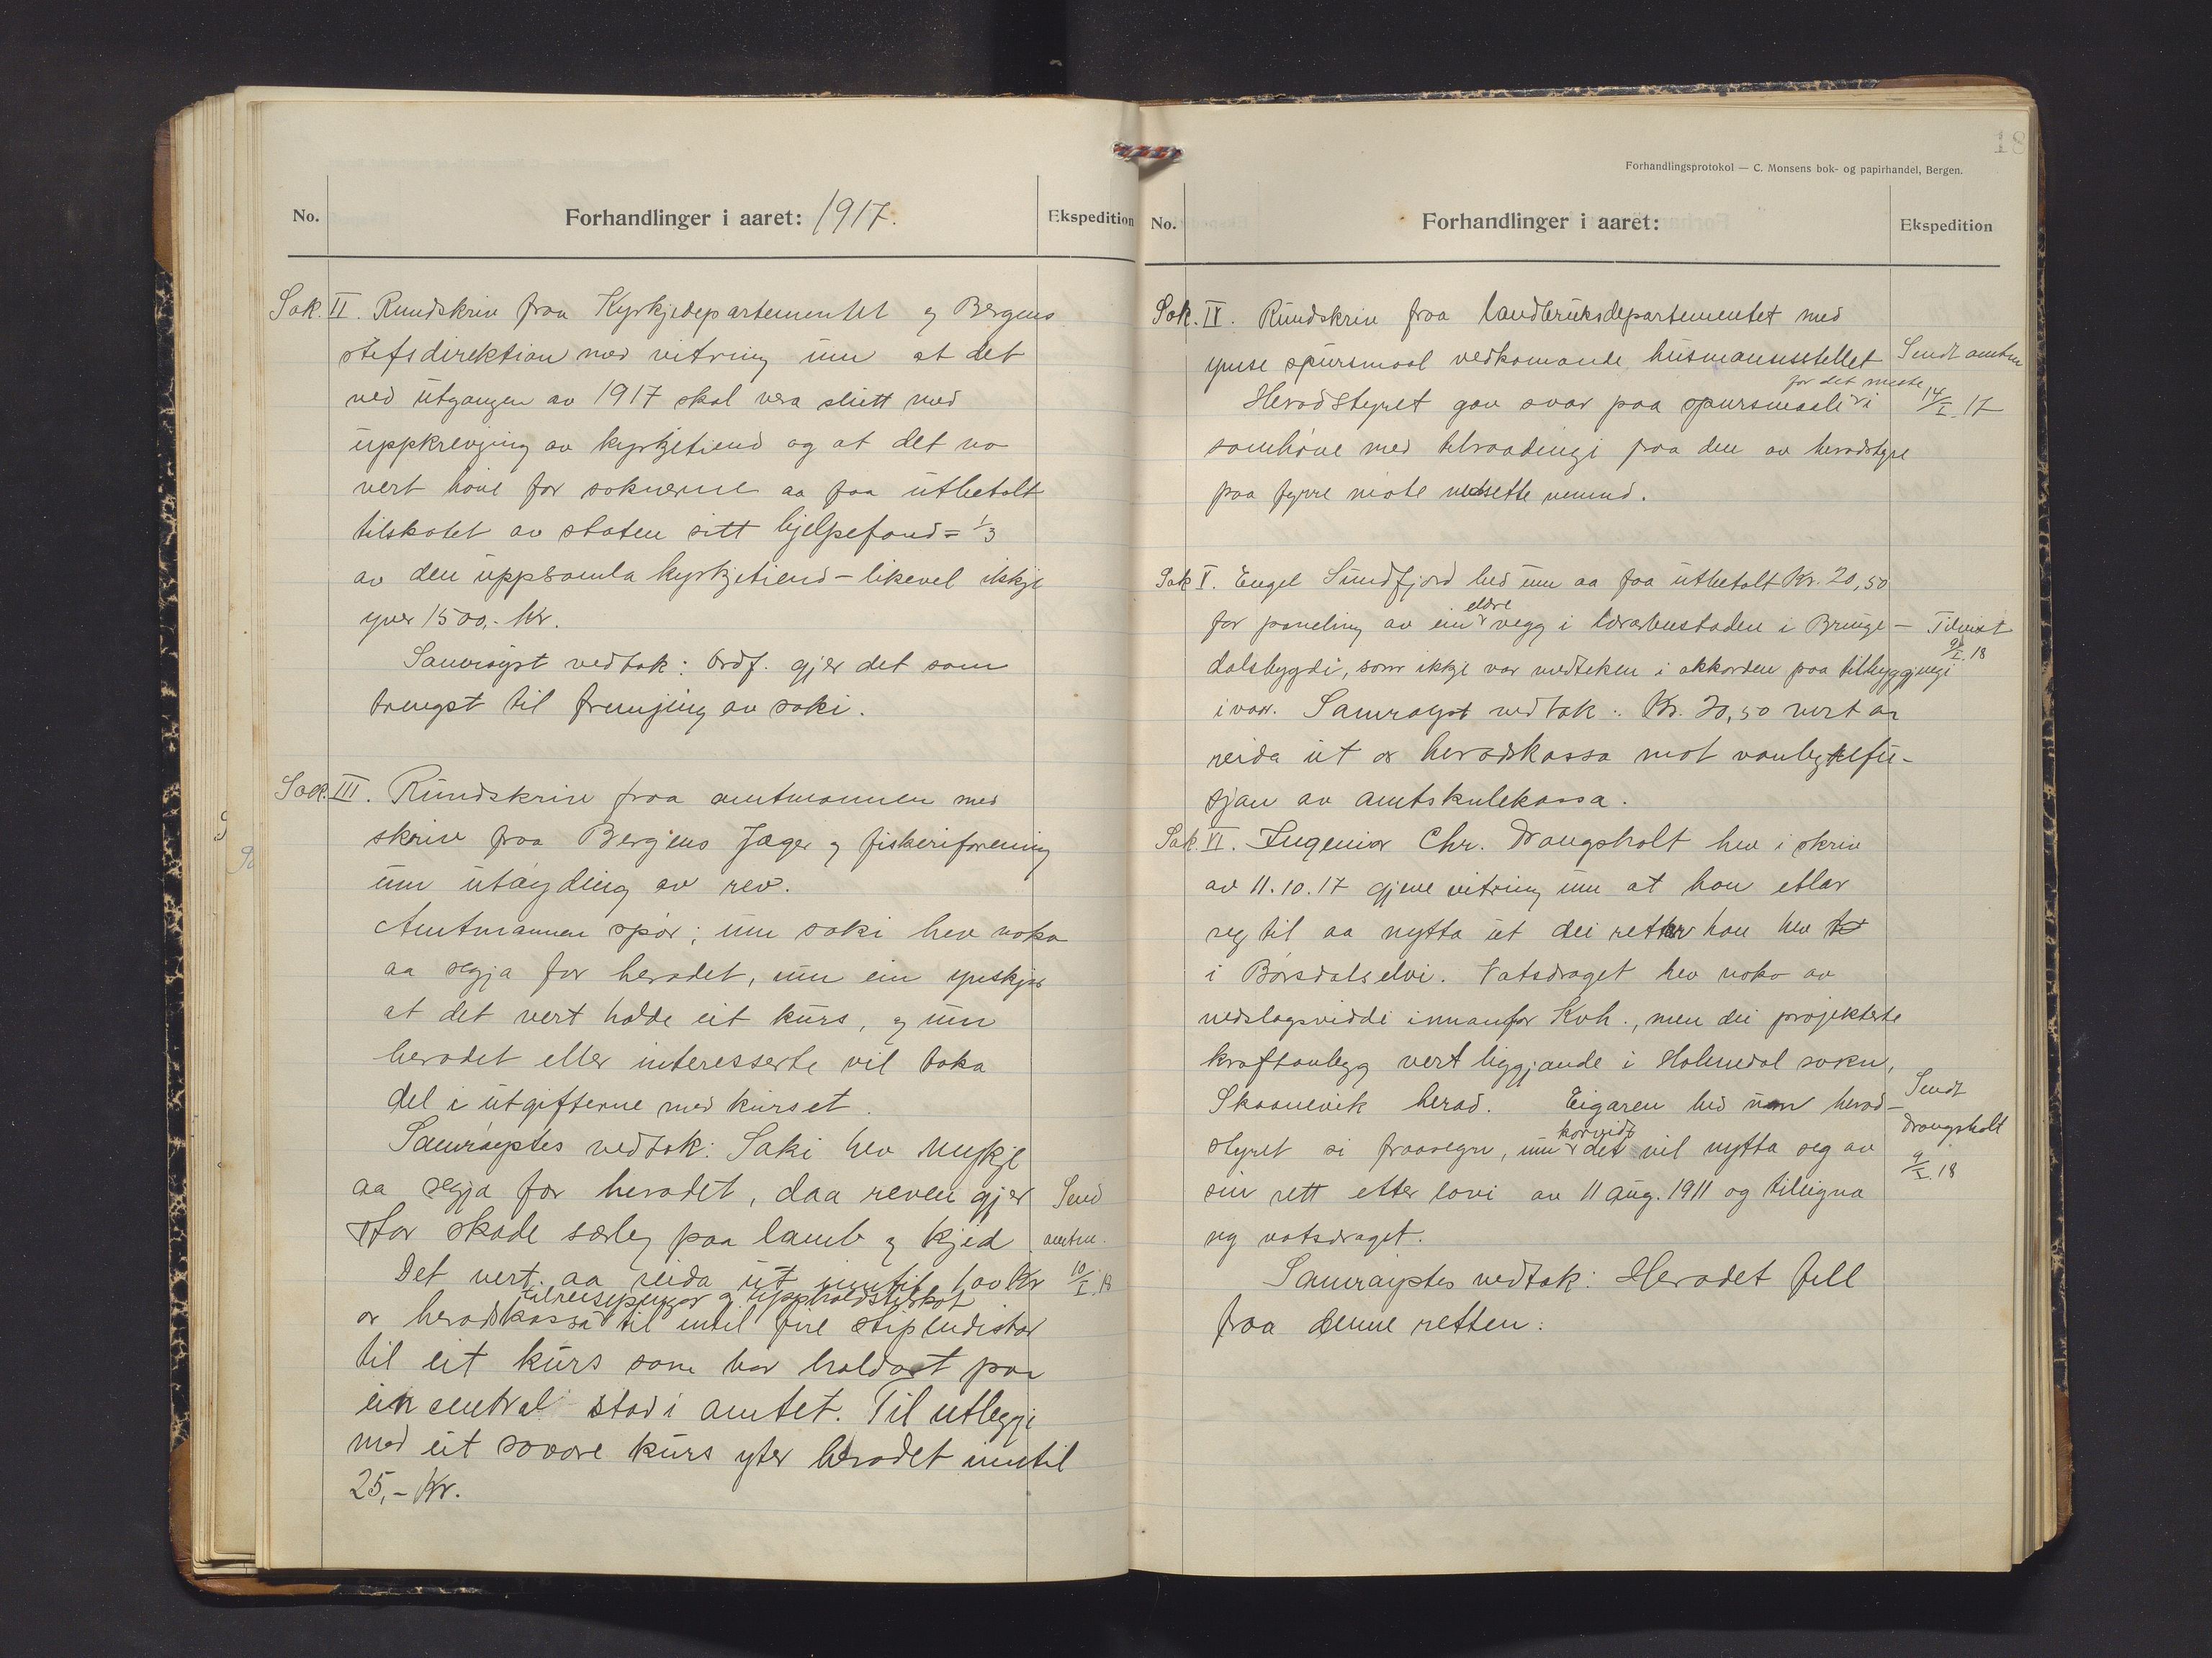 No.
Forhandlinger i aaret: 1917.
Ekspedition
Sak. II. Rundskriv fraa Kyrkjedepartementet og Bergens
stefsdirektion med vitring um at det
ved utgangen av 1917 skal vera slutt med
uppkrevjing av kyrkjetiend og at det no
vert høve for soknerne aa faa utbetalt
tilskotet av staten sitt hjelpefond = 1/3
av den uppsamla kyrkjetiend - likevel ikkje
yver 1500,- kr.
Samrøyst vedtak: Ordf. gjer det som
trengst til fremjing av saki.
Sak. III. Rundskriv fraa amtmannen med
skriv fraa Bergens Jæger og fiskeriforening
um utøyding av rev.
Amtmannen spør; um saki hev noko
aa segja for heradet, um ein ynskjer
at det vert halde eit kurs, og um
heradet eller interesserte vil taka
del i utgifterne med kurset.
Samrøystes vedtak: Saki hev mykje
aa segja for heradet, daa reven gjer
stor skade særleg paa lamb og kjed.
Send
amtm.
10/I.18
Det vert aa reida ut inntil 100 Kr
til reisepengar og upphaldstilskot
or heradskassa til intil fire stipendistar
til eit kurs som var haldast paa
ein central stad i amtet. Til utleggi
med eit sovore kurs yter heradet inntil
25,- Kr.
18
Forhandlingsprotokol — C. Monsens bok- og papirhandel, Bergen.
No.
Forhandlinger i aaret:
Ekspedition
Sak. IV. Rundskriv fraa landbruksdepartementet med
ymse spursmaal vedkomande husmannsstellet
Sendt amtm
14/I 17
for det meste
Heradstyret gav svar paa spursmaali i
samhøve med tilraadingi fraa den av heradstyre
paa fyrre møte nedsette nemnd.
Sak V. Engel Sundfjord bed um aa faa utbetalt Kr. 20,50
eldre
for paneling av ein vegg i lærarbustaden i Bringe-
Tilvist
9/I.18
dalsbygdi, som ikkje var medteken i akkorden paa tilbyggjingi
i vaar. Samrøyst vedtak: Kr. 20,50 vert aa
reida ut or heradskassa mot vanleg refu-
sjon av amtskulekassa.
Sak. VI. Ingeniør Chr. Drangsholt hev i skriv
av 11.10.17 gjeve vitring um at han etlar
seg til aa nytta ut dei retter han hev
i Børsdalselvi. Vatsdraget hev noko av
nedslagsviddi innanfor Kvh., men dei projekterte
kraftanlegg vert liggjande i Holmedal sokn,
Skaanevik herad. Eigaren bed um herad-
Sendt
Drangsholt
9/I.18
korvidt
styret si fraasegn, um det vil nytta seg av
sin rett etter lovi av 11 aug. 1911 og tileigna
seg vatsdraget.
Samrøystes vedtak: Heradet fell
fraa denne retten.